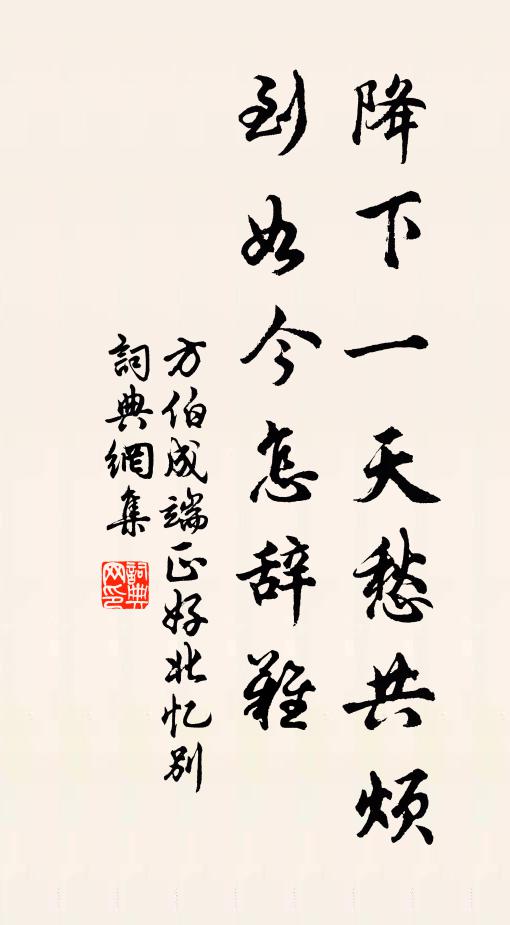 降下一天愁共烦
到如今怎辞难
方伯成端正好北忆别
詞典網集
詞典网印